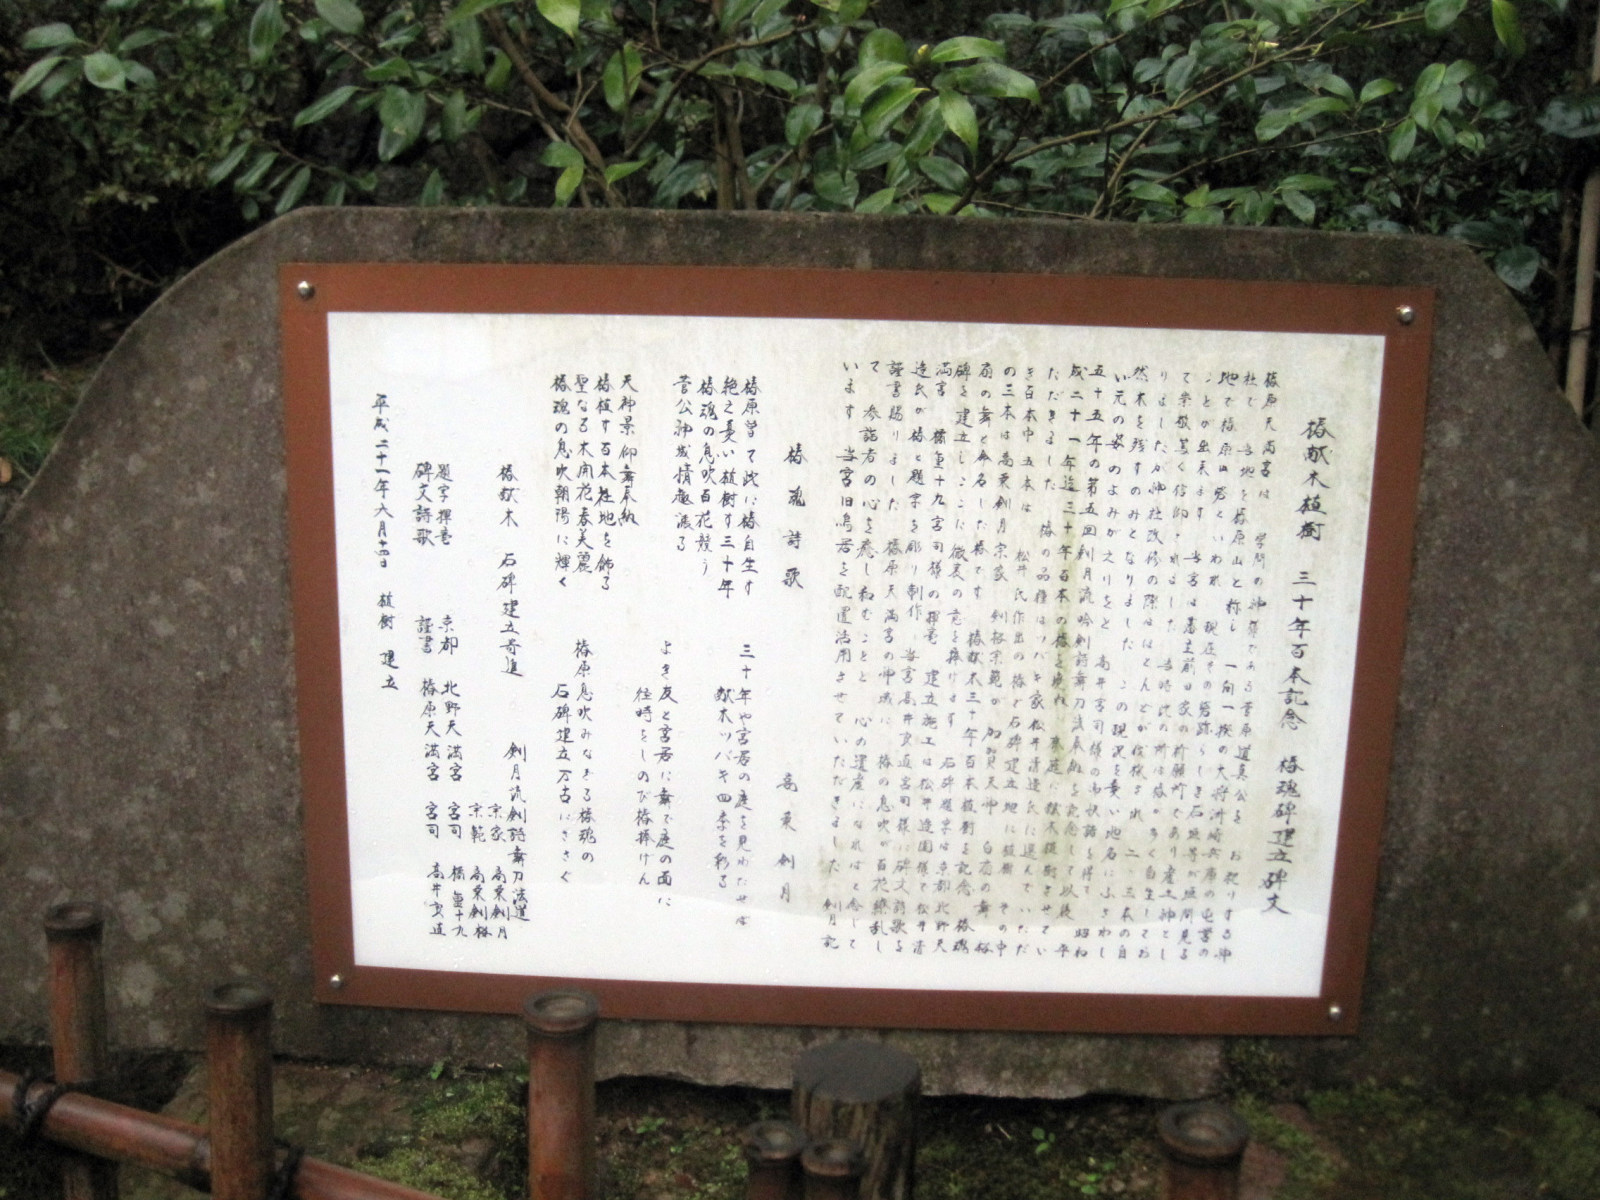 椿献木植樹 三十年百本記念 椿魂碑建立碑文
椿原天満宮は 学問の神様である菅原道真公を お祀りする神
社で 当地を椿原山と称し 一向一揆の大将洲崎兵庫の屯営の
地で椿原山砦といわれ 現在その砦跡らしき石垣等が垣間見る
ことが出来ます 当宮は藩主前田家の祈願所であり産土神とし
て崇敬篤く信仰されました 当時此の所は椿が多く自生してお
りましたが神社改修の際はほとんどが伐採され 二、三本の自
然木を残すのみとなりました この現況を憂い地名にふさわし
い元の姿のよみがえりをと 高井宮司様の
五十五年の第五回剣月流吟剣詩舞刀法奉納を記念して以後 平
成二十一年迄三十年百本の椿を
ただきました 椿の品種はツバキ家松井清造氏に選んで いただ
き百本中 五本は 松井氏作出の椿で石碑建立地に植樹 その中
の三本は高東剣月宗家 剣裕宗範が 加賀天神 白扇の舞 裕
扇の舞と命名した椿です 椿献木三十年百本植樹を記念 椿魂
碑を建立しここに微衷の意を捧げます 石碑題字は京都北野天
満宮 橘重十九宮司様の揮毫 建立施工は松井造園様で松井清
造氏が椿と題字を彫り制作 当宮高井良直宮司様に碑文詩歌を
謹書賜りました 椿原天満宮の神域に 椿の息吹が百花繚乱し
て 参詣者の心を癒し和むことと 心の遺産になればと念じて
います 当宮旧鳥居を配置活用させていただきました 剣月記
椿魂詩歌 高東剣月
椿原曽て此に椿自生す
絶之憂い植樹す三十年
椿魂の息吹百花競う
菅公神域情趣漲る
三十年や宮居の庭を見わたせば
献木ツバキ四季を彩る
天神景仰舞奉納
椿植す百本社地を飾る
聖なる木開花春美麗
椿魂の息吹朝陽に輝く
よき友と宮居に舞て庭の面に
径時をしのび椿捧げん
椿原息吹みなぎる椿魂の
石碑建立万古にささぐ
椿献木 石碑建立寄進 剣月流剣詩舞刀法道
宗家 高東剣月
宗範 高東剣裕
題字揮毫 京都 北野天満宮 宮司 橘重十九
碑文詩歌 謹書 椿原天満宮 宮司 高井良直
平成二十一年六月十四日 植樹 建立